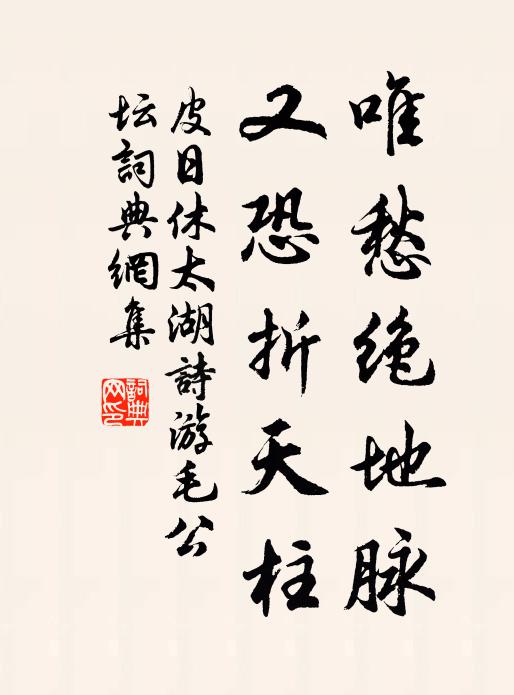 唯愁绝地脉
又恐折天柱
皮日休太湖詩游毛公
坛詞典網集
詞典网印